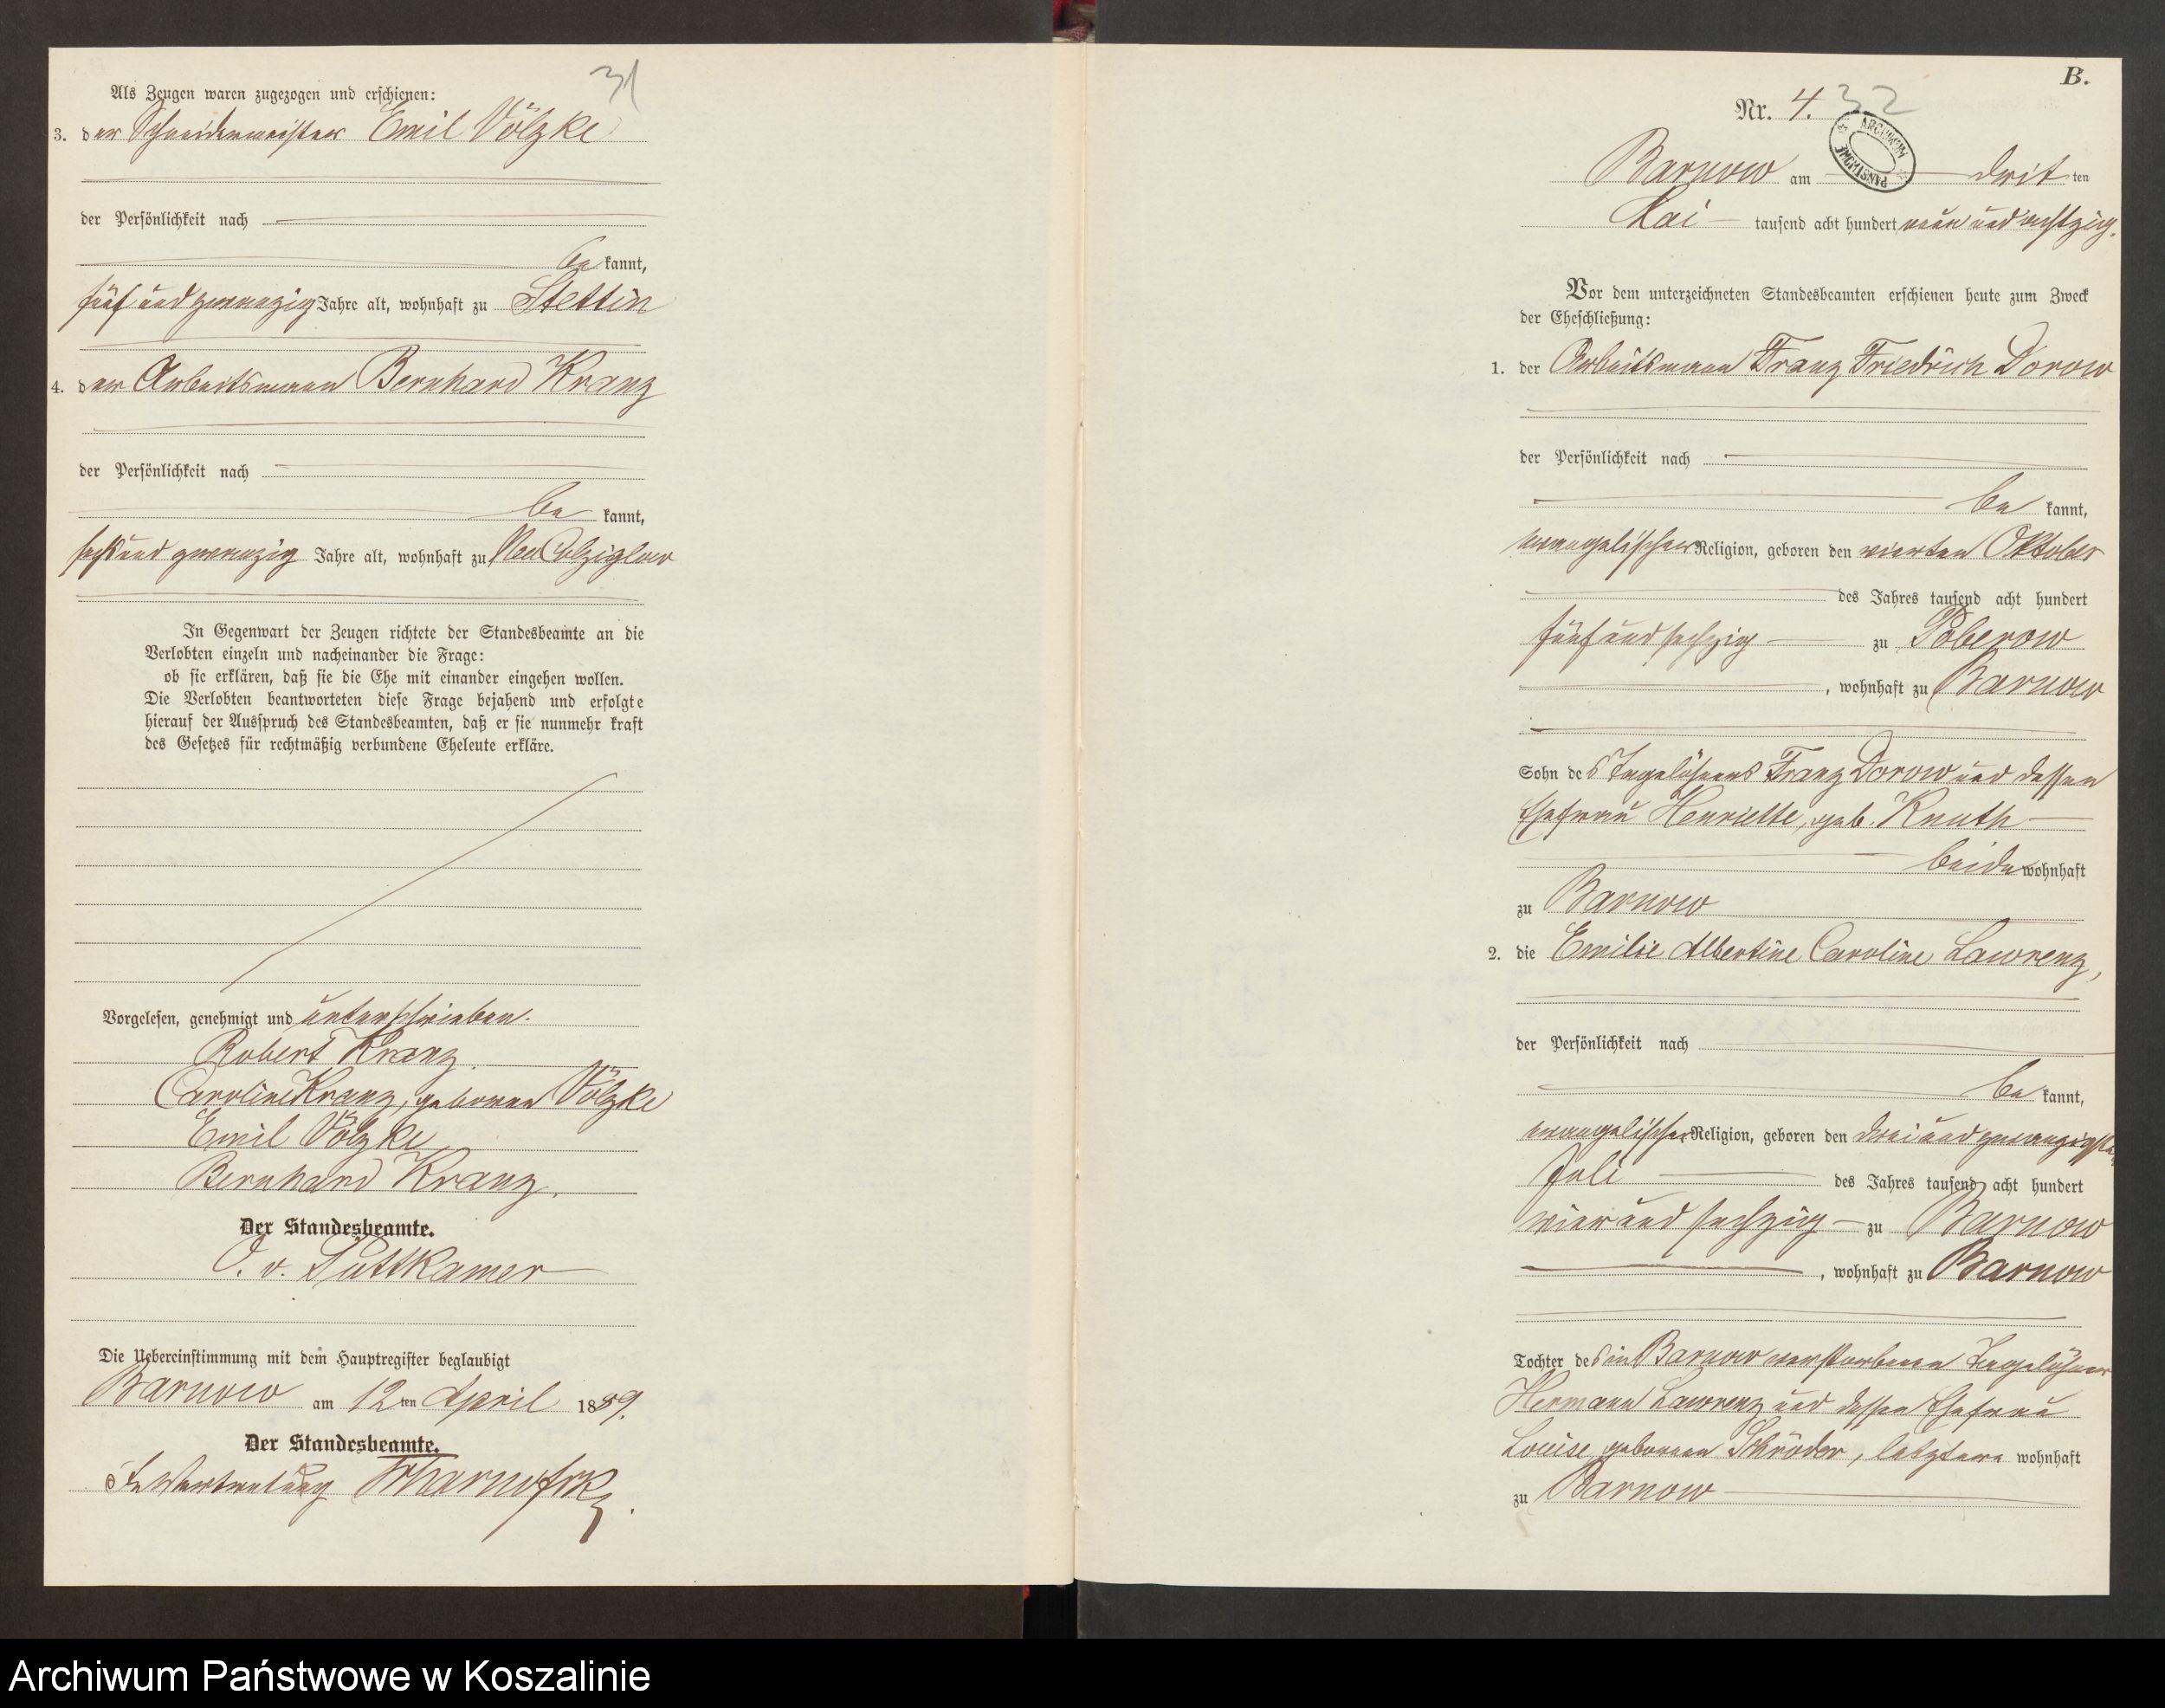 31
Als Zeugen waren zugezogen und erschienen:
3. der Schneidermeister Emil Völzke
der Persönlichkeit nach
be kannt,
fünf und zwanzig Jahre alt, wohnhaft zu Stettin
4. der Arbeitsmann Bernhard Kranz
der Persönlichkeit nach
be kannt,
sechs und zwanzig Jahre alt, wohnhaft zu Neu Colziglow
In Gegenwart der Zeugen richtete der Standesbeamte an die
Verlobten einzeln und nacheinander die Frage:
ob sie erklären, daß sie die Ehe mit einander eingehen wollen.
Die Verlobten beantworteten diese Frage bejahend und erfolgte
hierauf der Ausspruch des Standesbeamten, daß er sie nunmehr kraft
des Gesetzes für rechtmäßig verbundene Eheleute erkläre.
Vorgelesen, genehmigt und unterschrieben.
Robert Kranz.
Caroline Kranz, geborene Völzke
Emil Völzke
Bernhard Kranz.
Der Standesbeamte.
O. v. Puttkamer
Die Uebereinstimmung mit dem Hauptregister beglaubigt
Barnow am 12 ten April 1889.
Der Standesbeamte.
In Vertretung
B.
Nr. 4. 32
ARCHIWUM PAŃSTWOWE
Barnow am drit ten
Mai tausend acht hundert neun und achtzig.
Vor dem unterzeichneten Standesbeamten erschienen heute zum Zweck
der Eheschließung:
1. der Arbeitsmann Franz Friedrich Dorow
der Persönlichkeit nach
be kannt,
evangelischer Religion, geboren den vierten Oktober
des Jahres tausend acht hundert
fünf und sechzig zu Poberow
, wohnhaft zu Barnow
Sohn des Tagelöhners Franz Dorow und dessen
Ehefrau Henriette, geb. Knuth
beide wohnhaft
zu Barnow
2. die Emilie Albertine Caroline Lawrenz,
der Persönlichkeit nach
be kannt,
evangelischer Religion, geboren den drei und zwanzigsten
Juli des Jahres tausend acht hundert
vier und sechzig zu Barnow
, wohnhaft zu Barnow
Tochter des in Barnow verstorbenen Tagelöhners
Hermann Lawrenz und dessen Ehefrau
Louise geborene Schröder, letztere wohnhaft
zu Barnow
Archiwum Państwowe w Koszalinie